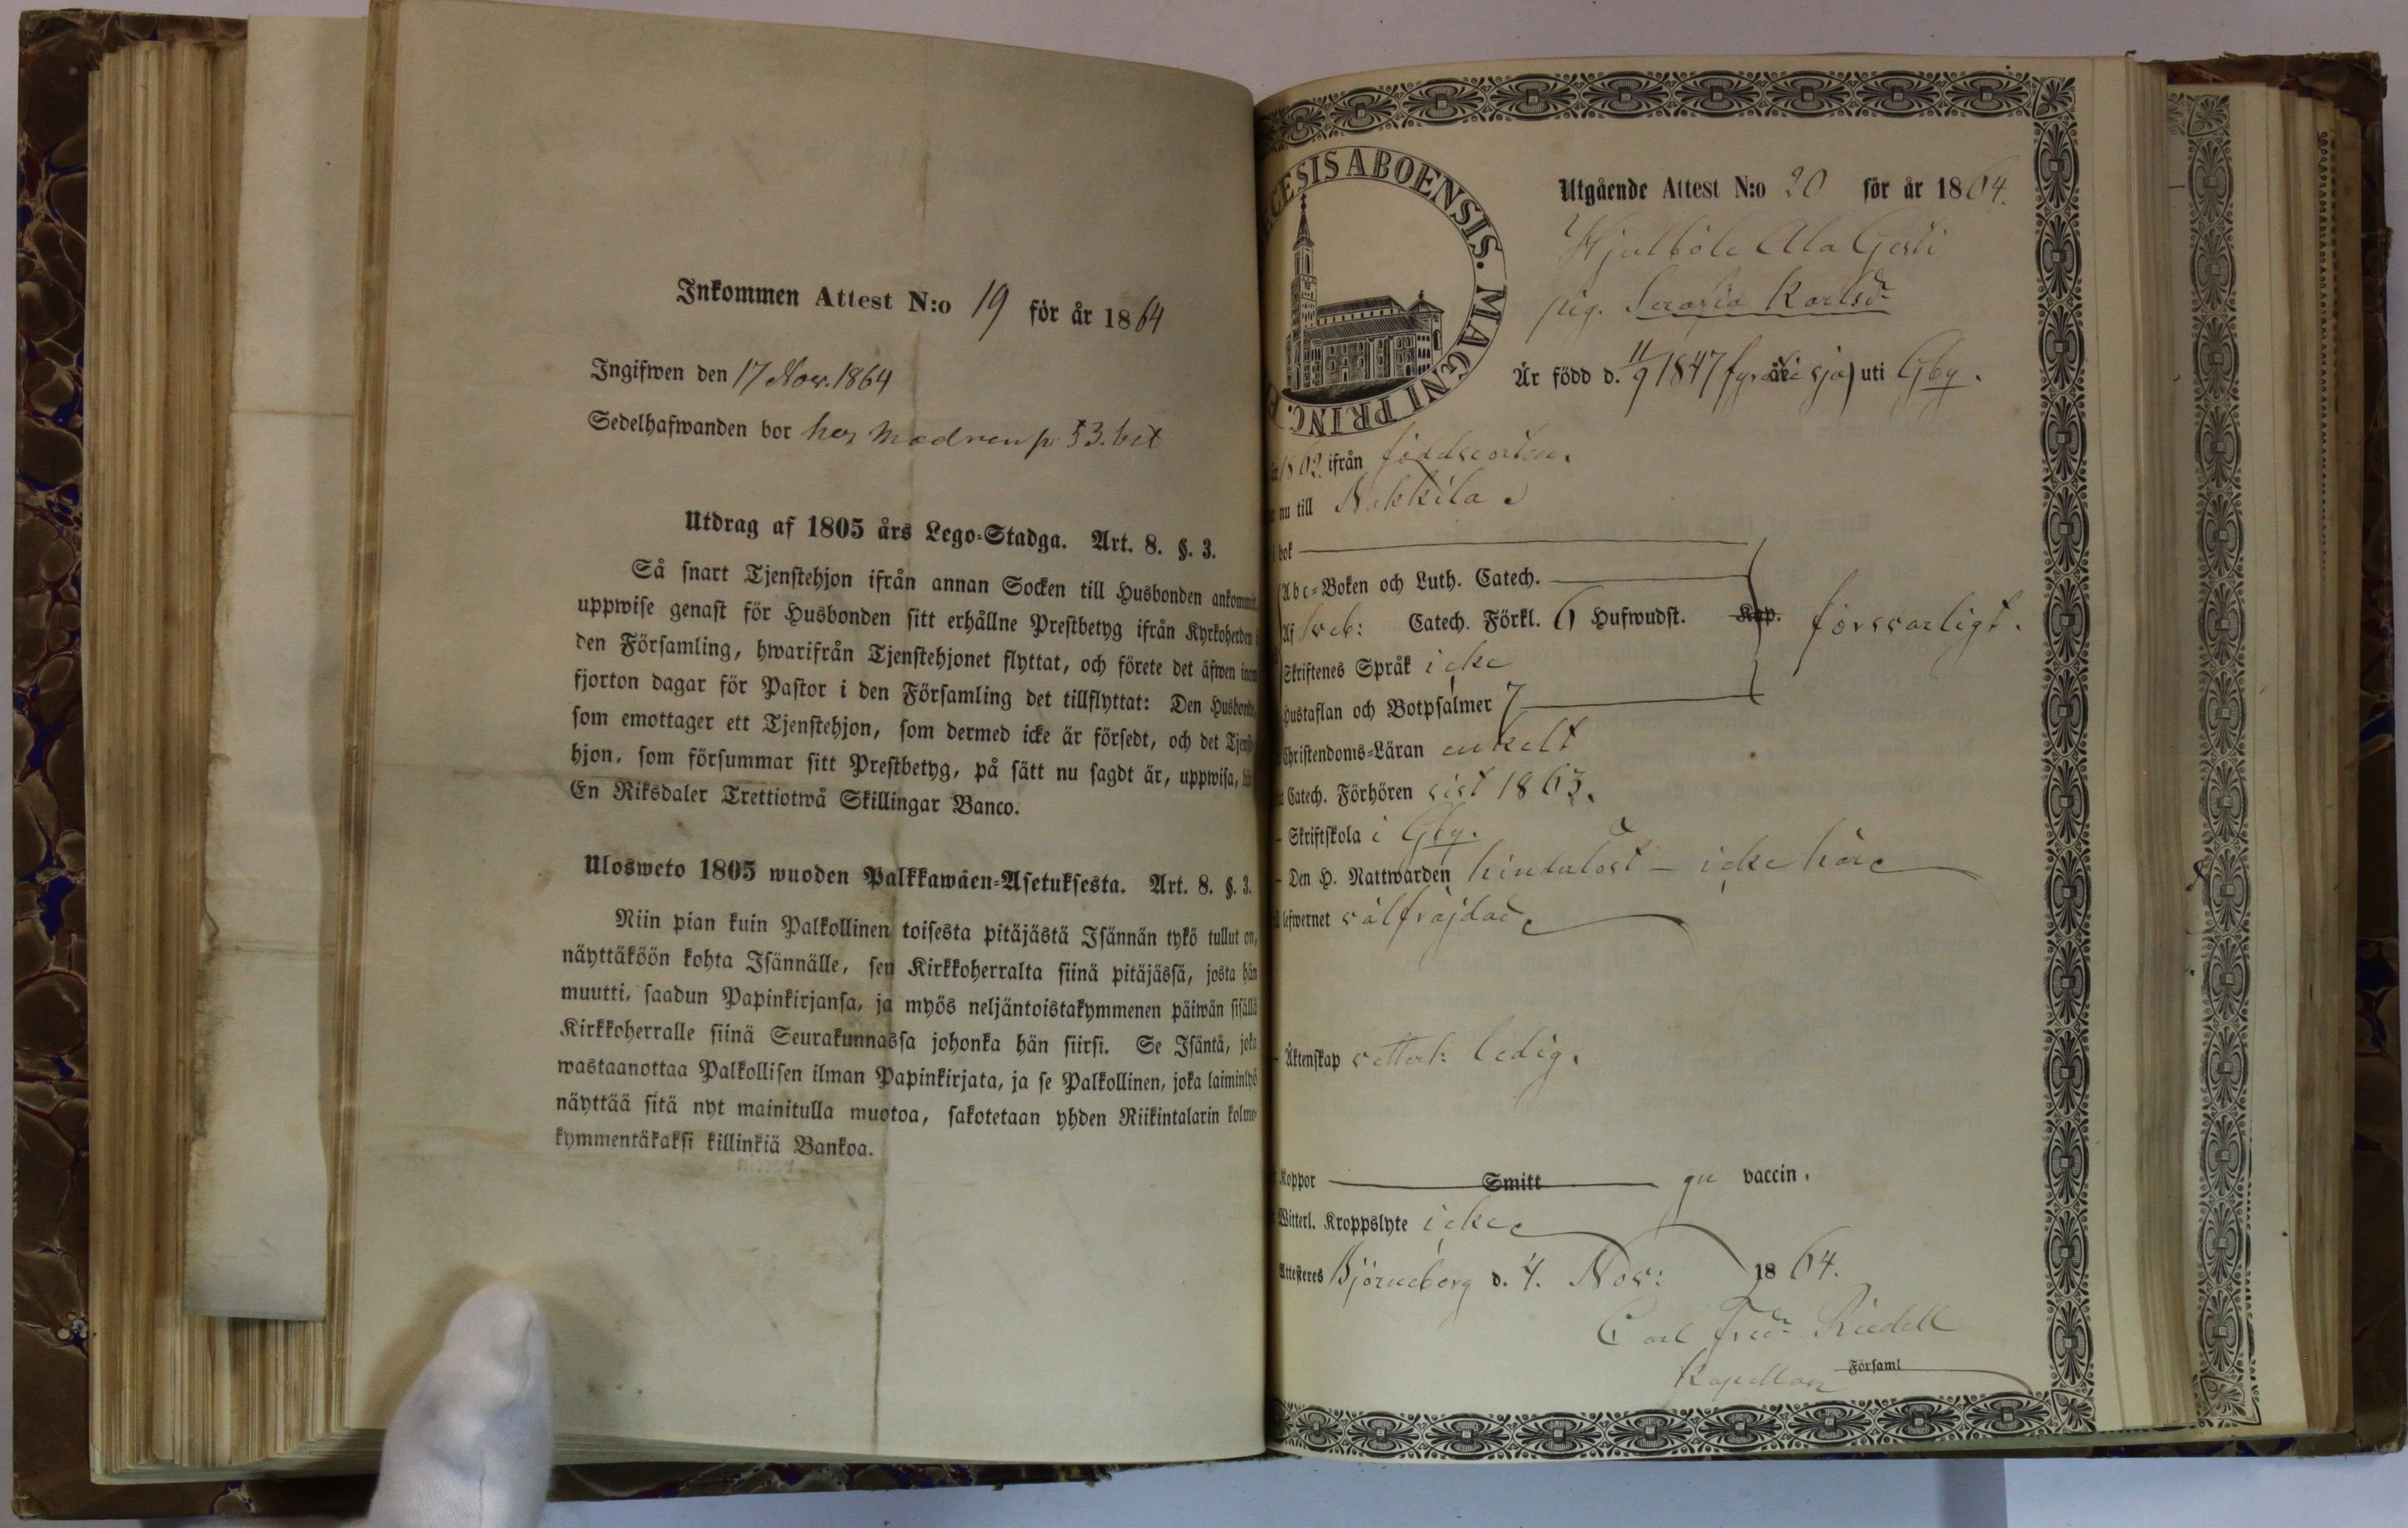 Inkommen Attest N:o 19 för år 1864
Ingifwen den 17 Nov. 1864
Sedelhafwanden bor hos modren
Utdrag af 1805 års Lego-Stadga. Art. 8. §. 3.
Så snart Tjenstehjon ifrån annan Socken till Husbonden ankommit,
uppwise genast för Husbonden sitt erhållne Prestbetyg ifrån Kyrkoherden
den Församling, hwarifrån Tjenstehjonet flyttat, och förete det äfwen inom
fjorton dagar för Pastor i den Församling det tillflyttat: Den Husbonde
som emottager ett Tjenstehjon, som dermed icke är försedt, och det Tjenste
hjon, som försummar sitt Prestbetyg, på sätt nu sagdt är, uppwisa,
En Riksdaler Trettiotwå Skillingar Banco.
Ulosweto 1805 wuoden Palkkawäen-Asetuksesta. Art. 8. §. 3.
Niin pian kuin Palkollinen toisesta pitäjästä Isännän tykö tullut on,
näyttäköön kohta Isännälle, sen Kirkkoherralta siinä pitäjässä, josta hän
muutti, saadun Papinkirjansa, ja myös neljäntoistakymmenen päiwän sisällä
Kirkkoherralle siinä Seurakunnassa johonka hän siirsi. Se Isäntä, joka
wastaanottaa Palkollisen ilman Papinkirjata, ja se Palkollinen, joka laiminlyö
näyttää sitä nyt mainitulla muotoa, sakotetaan yhden Riikintalarin kolme-
kymmentäkaksi killinkiä Bankoa.
CESIS ABOENSIS. MAGNI PRINC. F
Utgående Attest N:o 20 för år 1864.
Hjulböle Ala Gesti
pig. Serafia Karlsdr
Är född d. 11/9 1847 uti Gby.
1862 ifrån födelseorten.
nu till Nakkila
bok
Abc-Boken och Luth. Catech.
Af Sveb: Catech. Förkl. 6 Hufwudst. Kap. försvarligt.
Skriftenes Språk icke
Hustaflan och Botpsalmer 7
Christendoms-Läran enkelt
Catech. Förhören sist 1863.
Skriftskola i Gby.
Den H. Nattwarden hindalöst - icke här
lefwernet välfräjdad
Äktenskap vetterl: ledig.
Koppor Smitt gn vaccin.
Witterl. Kroppslyte icke
Attesteres Björneborg d. 4. Nov: 1864.
Carl Fredr Riedell
Kapellan Församl